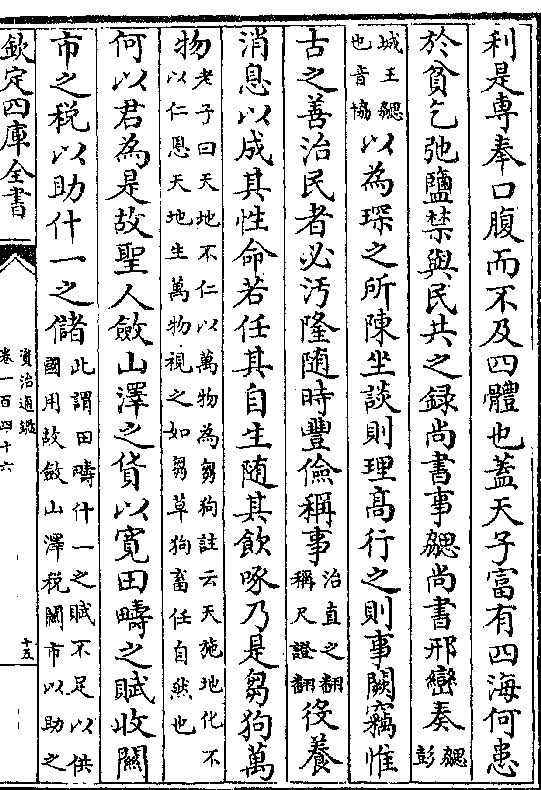 利是專奉口腹而不及四體也蓋天子富有四海何患
於貧乞弛鹽禁與民共之録尚書事勰尚書邢巒奏勰彭
城王勰也音協以為琛之所陳坐談則理高行之則事闕竊惟
古之善治民者必汚隆随時豐儉稱事治直之翻稱尺證翻役養
消息以成其性命若任其自生随其飲啄乃是芻狗萬
物老子曰天地不仁以萬物為芻狗註云天施地化不以仁恩天地生萬物視之如芻草狗畜任自然也
何以君為是故聖人斂山澤之貨以寛田疇之賦收關
市之税以助什一之儲此謂田疇什一之賦不足以供國用故斂山澤税關市以助之
欽定四庫全書
資治通鑑
卷一百四十六
十五